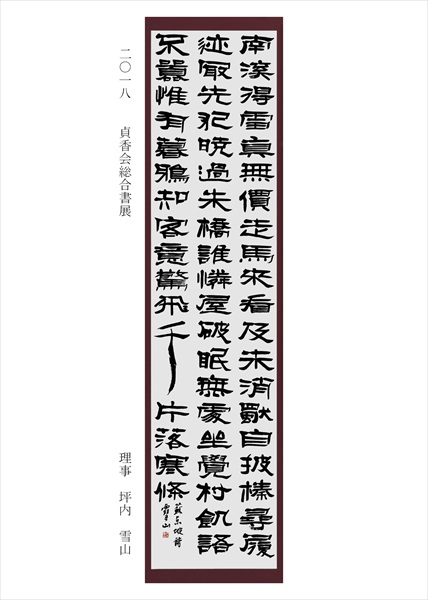 南溪得雪真無價走馬來看及未消獨自披榛尋履
迹冣先犯曉過朱橋誰憐屋破眠無處坐覺村飢語
不囂惟有暮鴉知客意驚飛千片落寒條
蘇東坡詩
雪山
二〇一八 貞香会総合書展
理事 坪内 雪山